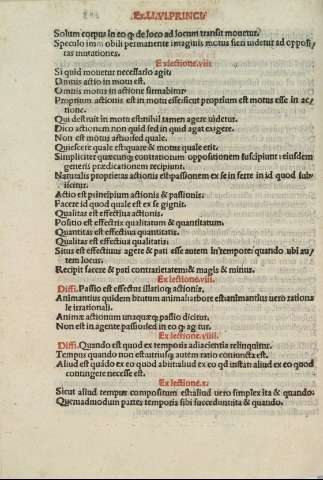 Ex.LI.VI.PRINCI.
Solum corpus in eo q̃ de loco ad locum transit mouetur.
Speculo immobili permanente imaginis motus fieri uidetur ad opposi-
tas mutationes.
Ex lectione.viii.
Si quid mouetur necessario agit.
Omnis actio in motu est.
Omnis motus in actione firmabitur
Proprium actionis est in motu esse sicut proprium est motus esse in ac-
tione.
Qui destruit in motu est nihil tamen agere uidetur.
Dico actionem non quid sed in quid agat exigere.
Non est motus actio sed quale.
Quiescere quale est quare & motus quale erit.
Simpliciter quæcunq; contrariorum oppositionem suscipiunt: eiusdem
generis prædicationem recipiunt.
Naturalis proprietas actionis est passionem ex se inferre in id quod sub-
iicitur.
Actio est principium actionis & passionis.
Facere id quod quale est ex se gignit.
Qualitas est effectiua actionis.
Positio est effectrix qualitatum & quantitatum.
Quantitas est effectiua quantitatis.
Qualitas est effectiua qualitatis:
Situs est effectiuus agere & pati esse autem in tempore: quando ubi au-
tem locus.
Recipit facere & pati contrarietatem: & magis & minus.
Ex lectione.viii.
Diffi. Passio est effectus illatioq; actionis,
Animantius quidem brutum animal arbore est animantius uero rationa
le irrationali.
Animæ actionum unaquæq; passio dicitur.
Non est in agente passio sed in eo q̃ agitur.
Ex lectione.viiii.
Diffi. Quando est quod ex temporis adiacentia relinquitur.
Tempus quando non est: utriusq; autem ratio coniuncta est.
Aliud est quãdo ex eo quod abiit aliud ex eo qđ instat: aliud ex eo quod
contingere necesse est.
Ex lectione.x.
Sicut aliud tempus compositum est: aliud uero simplex ita & quando:
Quemadmodum partes temporis sibi succedunt ita & quando.